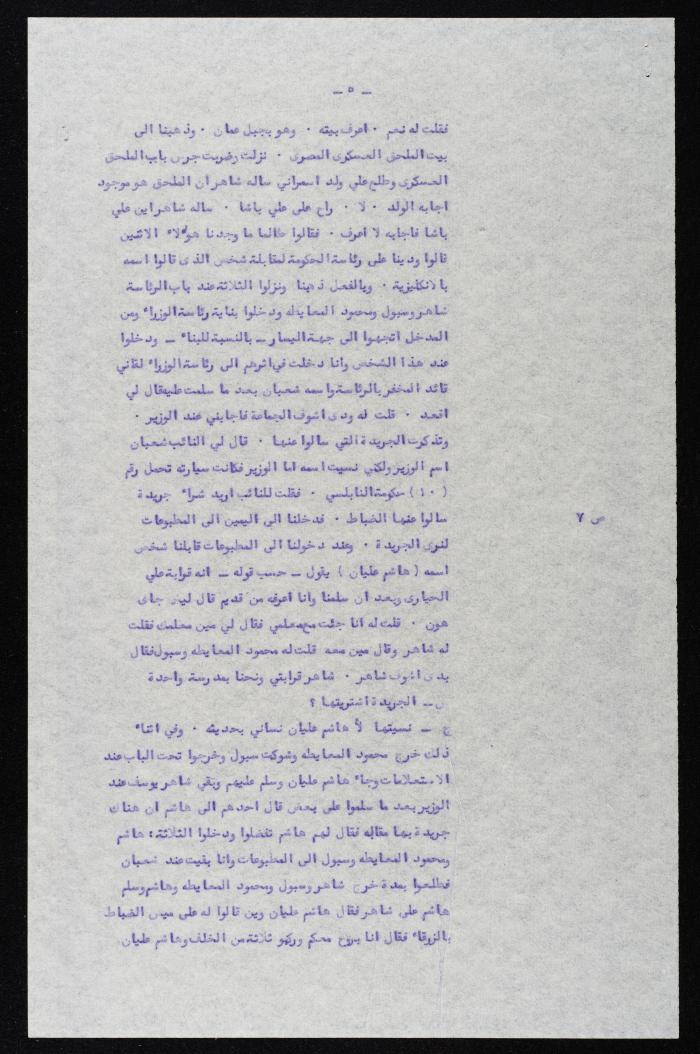 — ٥ —
فقلت له نعم ٠ اعرف بيته ٠ وهو بجبل عمان ٠ وذهبنا الى
بيت الملحق العسكرى المصرى ٠ نزلت وضربت جرس باب الملحق
العسكرى وطلع علي ولد اسمراني ساله شاهر ان الملحق هو موجود
اجابه الولد ٠ لا ٠ راح على علي باشا ٠ ساله شاهر اين علي
باشا فاجابه لا اعرف ٠ فقالوا طالما ما وجدنا هولاء الاثنين
قالوا ودينا على رئاسة الحكومة لمقابلة شخص الذى قالوا اسمه
بالانكليزية ٠ وبالفعل ذهبنا ونزلوا الثلاثة عند باب الرئاسة
شاهر وسبول ومحمود المعايطه ودخلوا بناية رئاسة الوزراء ومن
المدخل اتجهوا الى جهة اليسار — بالنسبة للبناء — ودخلوا
عند هذا الشخص وانا دخلت في اثرهم الى رئاسة الوزراء لقاني
قائد المخفر بالرئاسة واسمه شعبان بعد ما سلمت عليه قال لي
اقعد ٠ قلت له ودى اشوف الجماعة فاجابني عند الوزير ٠
وتذكرت الجريدة التي سالوا عنها ٠ قال لي النائب شعبان
اسم الوزير ولكني نسيت اسمه اما الوزير فكانت سيارته تحمل رقم
( ١٠ ) حكومة النابلسي ٠ فقلت للنائب اريد شراء جريدة
سالوا عنها الضباط ٠ فدخلنا الى اليمين الى المطبوعات
ص ٧
لنرى الجريدة ٠ وعند دخولنا الى المطبوعات قابلنا شخص
اسمه ( هاشم عليان ) يقول — حسب قوله — انه قرابة علي
الحيارى وبعد ان سلمنا وانا اعرفه من قديم قال ليه جاى
هون ٠ قلت له انا جئت مع معلمي فقال لي مين معلمك فقلت
له شاهر وقال مين معه قلت له محمود المعايطه وسبول فقال
بدى اشوف شاهر ٠ شاهر قرابتي ونحنا بمدرسة واحدة
س — الجريدة اشتريتها ؟
ج — نسيتها لأ هاشم عليان نساني بحديثه ٠ وفي اثناء
ذلك خرج محمود المعايطه وشوكت سبول وخرجوا تحت الباب عند
الاستعلامات وجاء هاشم عليان وسلم عليهم وبقي شاهر يوسف عند
الوزير بعد ما سلموا على بعض قال احدهم الى هاشم ان هناك
جريدة بها مقاله فقال لهم هاشم تفضلوا ودخلوا الثلاثة : هاشم
ومحمود المعايطه وسبول الى المطبوعات وانا بقيت عند شعبان
فطلعوا بمدة خرج شاهر وسبول ومحمود المعايطه وهاشم وسلم
هاشم على شاهر فقال هاشم عليان وين قالوا له على ميس الضباط
بالزرقاء فقال انا بروح معكم وركبو ثلاثة من الخلف وهاشم عليان